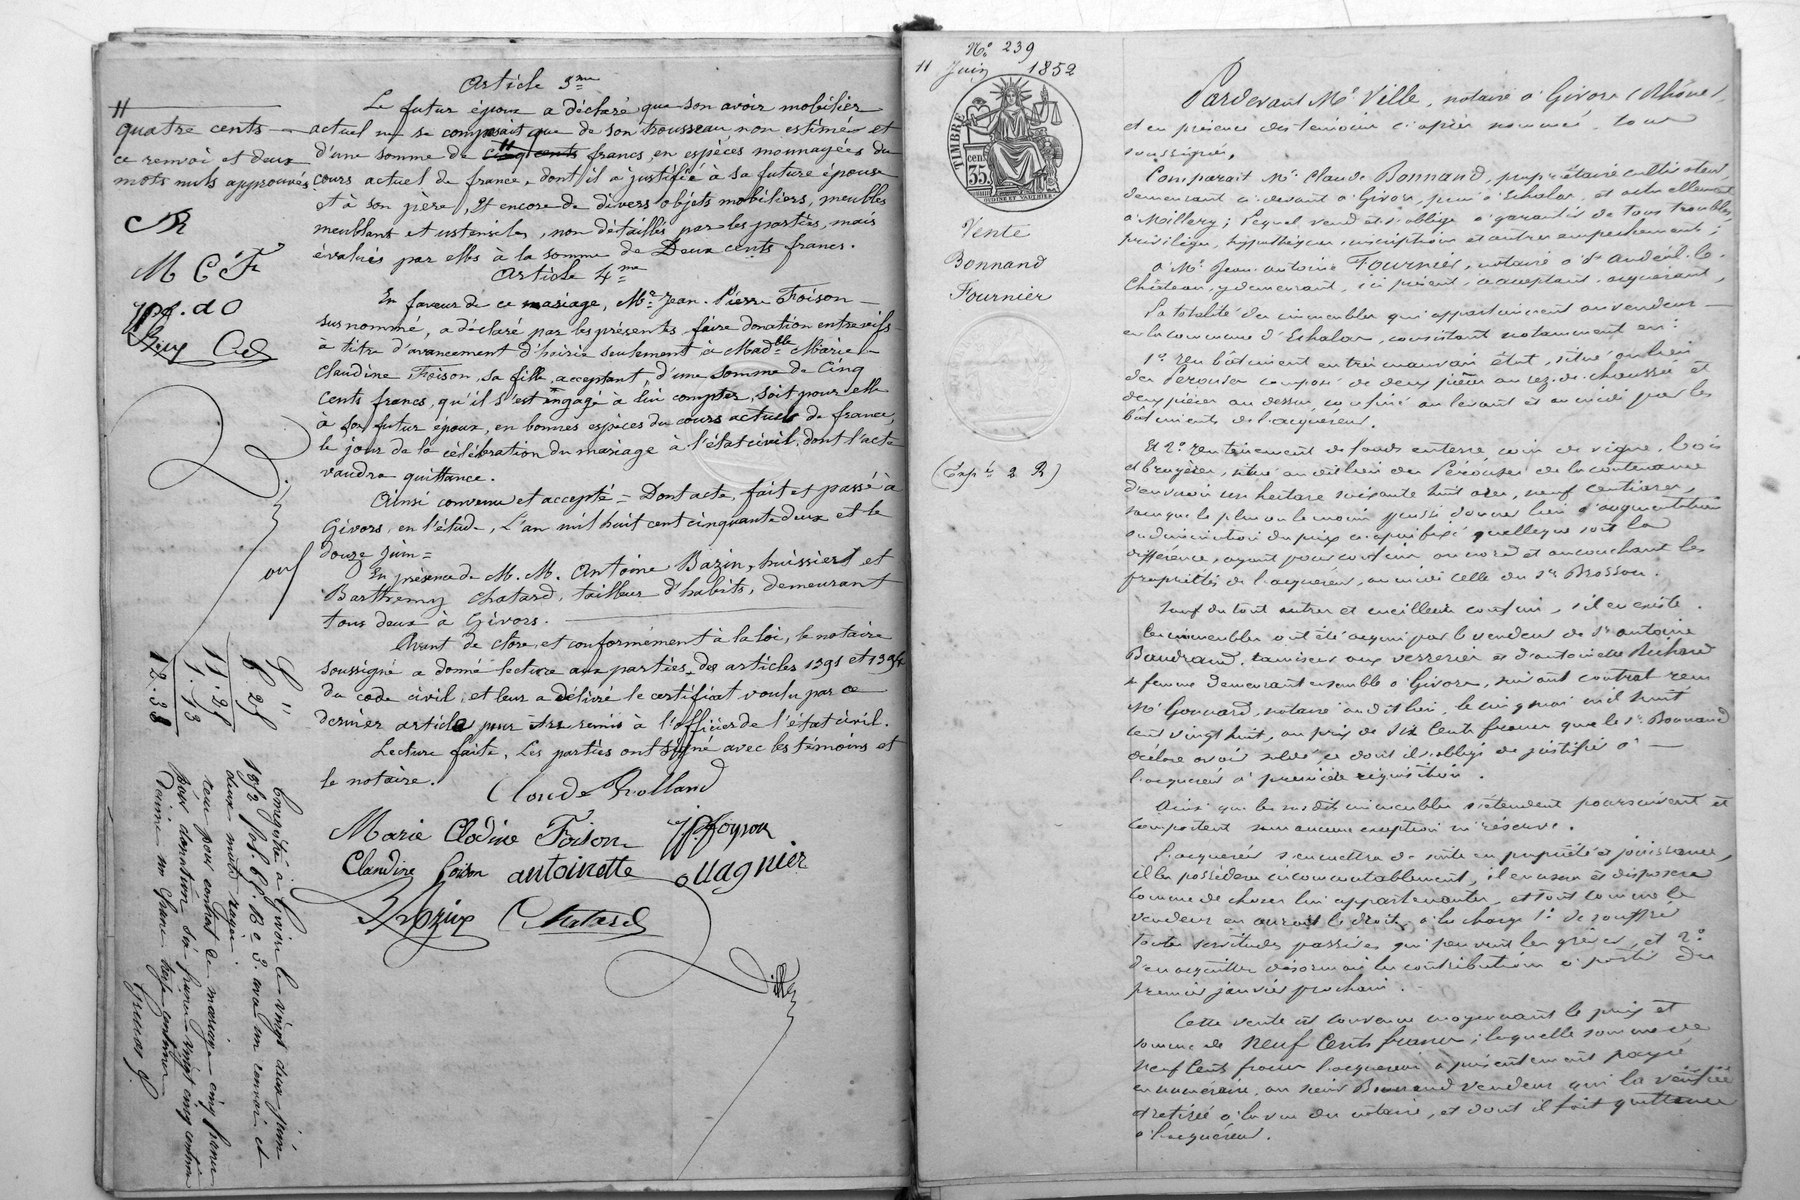 Article 3me
Le futur époux a déclaré que son avoir mobilier
actuel ne se composait que de son trousseau non estimé et
d'une somme de cinq cents francs, en espèces monnayées du
cours actuel de france, dont il a justifié a sa future épouse
et à son père, Et encore de divers objets mobiliers, meubles
meublants et ustensiles, non détaillés par les parties, mais
évalués par elles à la somme de Deux cents francs.
Article 4me
En faveur de ce mariage, Mr Jean-Pierre Foison
susnommé, a déclaré par les présentes faire donation entrevifs
à titre d'avancement d'hoirie seulement à Madlle Marie
Claudine Foison, sa fille, acceptant, d'une somme de Cinq
cents francs, qu'il s'est engagé à lui compter, soit pour elle
à son futur époux, en bonnes espèces du cours actuel de france,
le jour de la célébration du mariage à l'état civil, dont l'acte
vaudra quittance.
Ainsi convenu et accepté = Dont acte, fait et passé à
Givors, en l'étude, L'an mil huit cent cinquante deux et le
douze Juin =
En présence de M. M. Antoine Bazin, huissier et
Barthemy Chatard, tailleur d'habits, demeurant
tous deux à Givors.
Avant de clore, et conformément à la loi, le notaire
soussigné a donné lecture aux parties des articles 1391 et 1394
du code civil, et leur a délivré le certificat voulu par ce
dernier article pour être remis à l'officier de l'état civil.
Lecture faite, Les parties ont signé avec les témoins et
le notaire.
Claude Rolland
Marie Clodine Foison
Claudine Foison antoinette ouagnier
Chatard
Ville
quatre cents
ce renvoi et deux
mots nuls approuvés
CR
M C F
5 "
6. 25
11. 25
1. 13
12. 38
Enregistré à Givors le vingt deux juin
1852 fol. 67. R c 3. avec un renvoi et
deux mots rayés.
reçu pour contrat de mariage cinq francs
pour donation six francs vingt cinq centimes
Dixième un franc treize centimes
No 239
11 Juin 1852
TIMBRE
35 cen
Vente
Bonnand
Fournier
(Expn 2 R)
Pardevant Me Ville, notaire à Givors (Rhône),
et en présence des témoins ci après nommés, tous
soussignés,
Comparait Mr Claude Bonnand, propriétaire cultivateur,
demeurant ci devant à Givors, puis à Echalas, et actuellement
à Millery; lequel vend et s'oblige à garantir de tous troubles,
privilèges, hypothèques inscriptions et autres empêchements,
à Mr Jean antoine Fournier, notaire à St andéol-le-
Château, y demeurant, ici présent, acceptant, acquérant,
La totalité des immeubles qui appartiennent au vendeur
en la commune d'Echalas, consistant notamment en:
1o Un bâtiment en très mauvais état, situé au lieu
des Pérouses composé de deux pièces au rez-de-chaussée et
deux pièces au dessus, confiné au levant et au midi par les
bâtiments de l'acquéreur.
Et 2o Un tènement de fonds en terre, coin de vigne, bois
et bruyères, situé au dit lieu des Pérouses de la contenance
d'environ un hectare soixante huit ares, neuf centiares,
sans que le plus ou le moins puisse donner lieu d'augmentation
ou diminution du prix ci après fixé quelleque soit la
différence, ayant pour confins au nord et au couchant les
propriétés de l'acquéreur, au midi celle du Sr Brossou.
Sauf du tout autres et meilleurs confins, s'il en existe.
Ces immeubles ont été acquis par le vendeur de Sr antoine
Baudrand, tamiseur aux verreries et d'antoinette Richard
sa femme demeurant ensemble à Givors, suivant contrat reçu
Me Gonnard, notaire au dit lieu, le cinq mai mil huit
cent vingt huit, au prix de Six Cents francs que le Sr Bonnand
déclare avoir soldé, ce dont il s'oblige de justifier à
l'acquéreur à première réquisition.
Ainsi que les susdits immeubles s'étendent poursuivent et
comportent sans aucune exception ni réserve.
L'acquéreur s'en mettra de suite en propriété et jouissance,
il les possédera incommutablement, il en usera et disposera
comme de choses lui appartenantes, et tout comme le
vendeur en aurait le droit, à la charge 1o de souffrir
toutes servitudes passives qui peuvent les grever, et 2o
d'en acquitter désormais les contributions à partir du
premier janvier prochain.
Cette vente est convenue moyennant le prix et
somme de Neuf Cents francs; laquelle somme de
Neuf Cents francs l'acquéreur a présentement payée
en numéraire au sieur Bonnand vendeur qui la vérifiée
et retirée à la vue du notaire, et dont il fait quittance
à l'acquéreur.